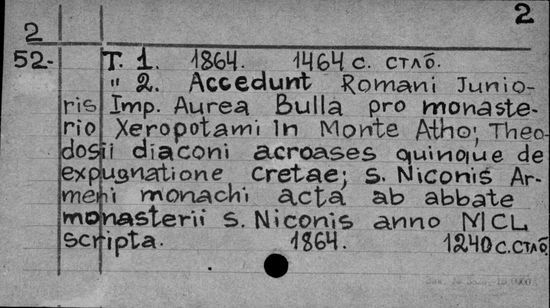 2
2
52- Т. 1. 1864. 1464 с. стлб.
" 2. Accedunt Romani Junio-
ris Imp. Aurea Bulla pro monaste-
rio Xeropotami in Monte Atho; Theo-
dosii diaconi acroases quinque de
expugnatione cretae; s. Niconis Ar-
meni monachi acta ab abbate
monasterii s. Niconis anno MCL
scripta. 1864. 1240 с. стлб.